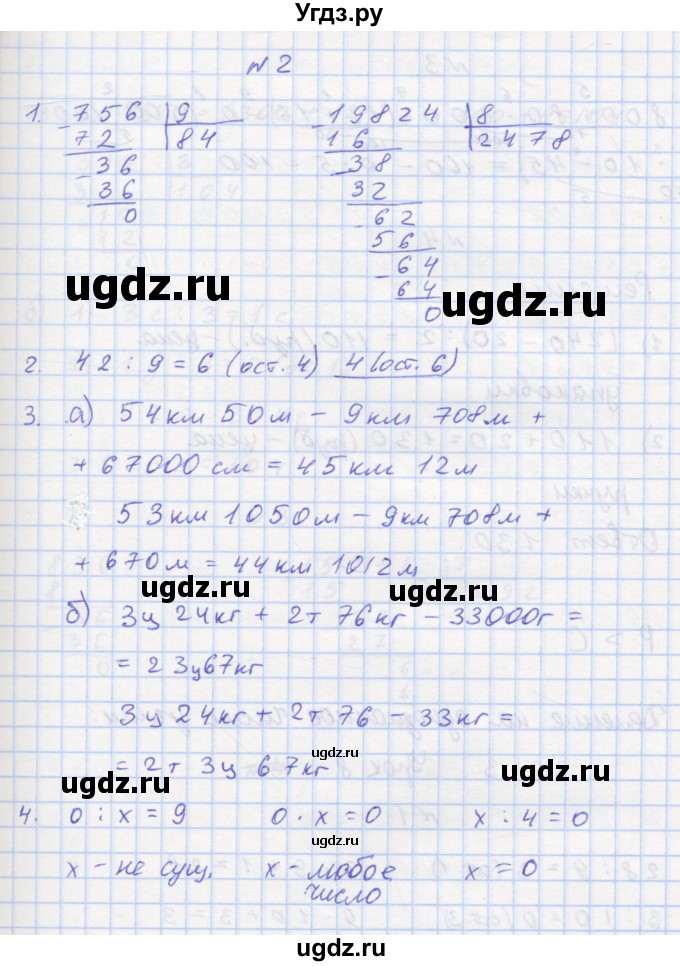 Угдз.ру
№2
1. - 756 | 9
72 | 84
- 36
36
0
- 19824 | 8
16 | 2478
- 38
32
- 62
56
- 64
64
0
ugdz.ru ugdz.ru
2. 42 : 9 = 6 (ост. 4) 4 (ост. 6)
3. а) 54км 50м - 9км 708м +
+ 67000 см = 45км 12м
53км 1050м - 9км 708м +
+ 670м = 44км 1012м
ugdz.ru ugdz.ru
б) 3ц 24кг + 2т 76кг - 33000г =
= 23ц67кг
3ц 24кг + 2т 76 - 33кг =
= 2т 3ц 67кг
ugdz.ru ugdz.ru ugdz.ru
4. 0 : х = 9 0 · х = 0 х : 4 = 0
ugdz.ru
х - не сущ. х - любое число х = 0
ugdz.ru ugdz.ru
ugdz.ru